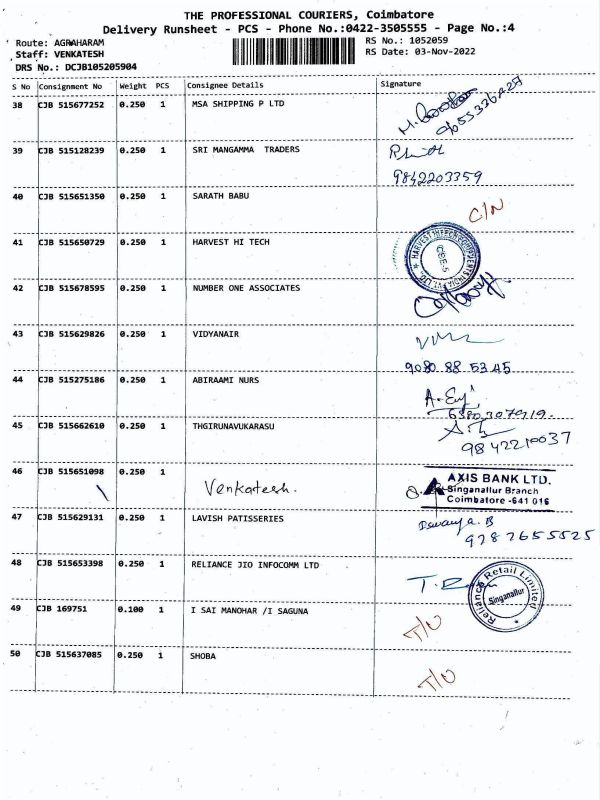 THE PROFESSIONAL COURIERS, Coimbatore
Delivery Runsheet - PCS - Phone No.:0422-3505555 - Page No.:4
Route: AGRAHARAM
RS No.: 1052059
Staff: VENKATESH
RS Date: 03-Nov-2022
DRS No.: DCJB105205904
S No Consignment No Weight PCS Consignee Details Signature
38 CJB 515677252 0.250 1 MSA SHIPPING P LTD
39 CJB 515128239 0.250 1 SRI MANGAMMA TRADERS
9842203359
40 CJB 515651350 0.250 1 SARATH BABU
C/N
41 CJB 515650729 0.250 1 HARVEST HI TECH
42 CJB 515678595 0.250 1 NUMBER ONE ASSOCIATES
43 CJB 515629826 0.250 1 VIDYANAIR
9080 88 5345
44 CJB 515275186 0.250 1 ABIRAAMI NURS
45 CJB 515662610 0.250 1 THGIRUNAVUKARASU
9842210037
46 CJB 515651098 0.250 1
Venkatesh.
AXIS BANK LTD.
Singanallur Branch
Coimbatore -641 016
47 CJB 515629131 0.250 1 LAVISH PATISSERIES
9787655525
48 CJB 515653398 0.250 1 RELIANCE JIO INFOCOMM LTD
Reliance Retail Limited
Singanallur
49 CJB 169751 0.100 1 I SAI MANOHAR /I SAGUNA
T/O
50 CJB 515637085 0.250 1 SHOBA
T/O